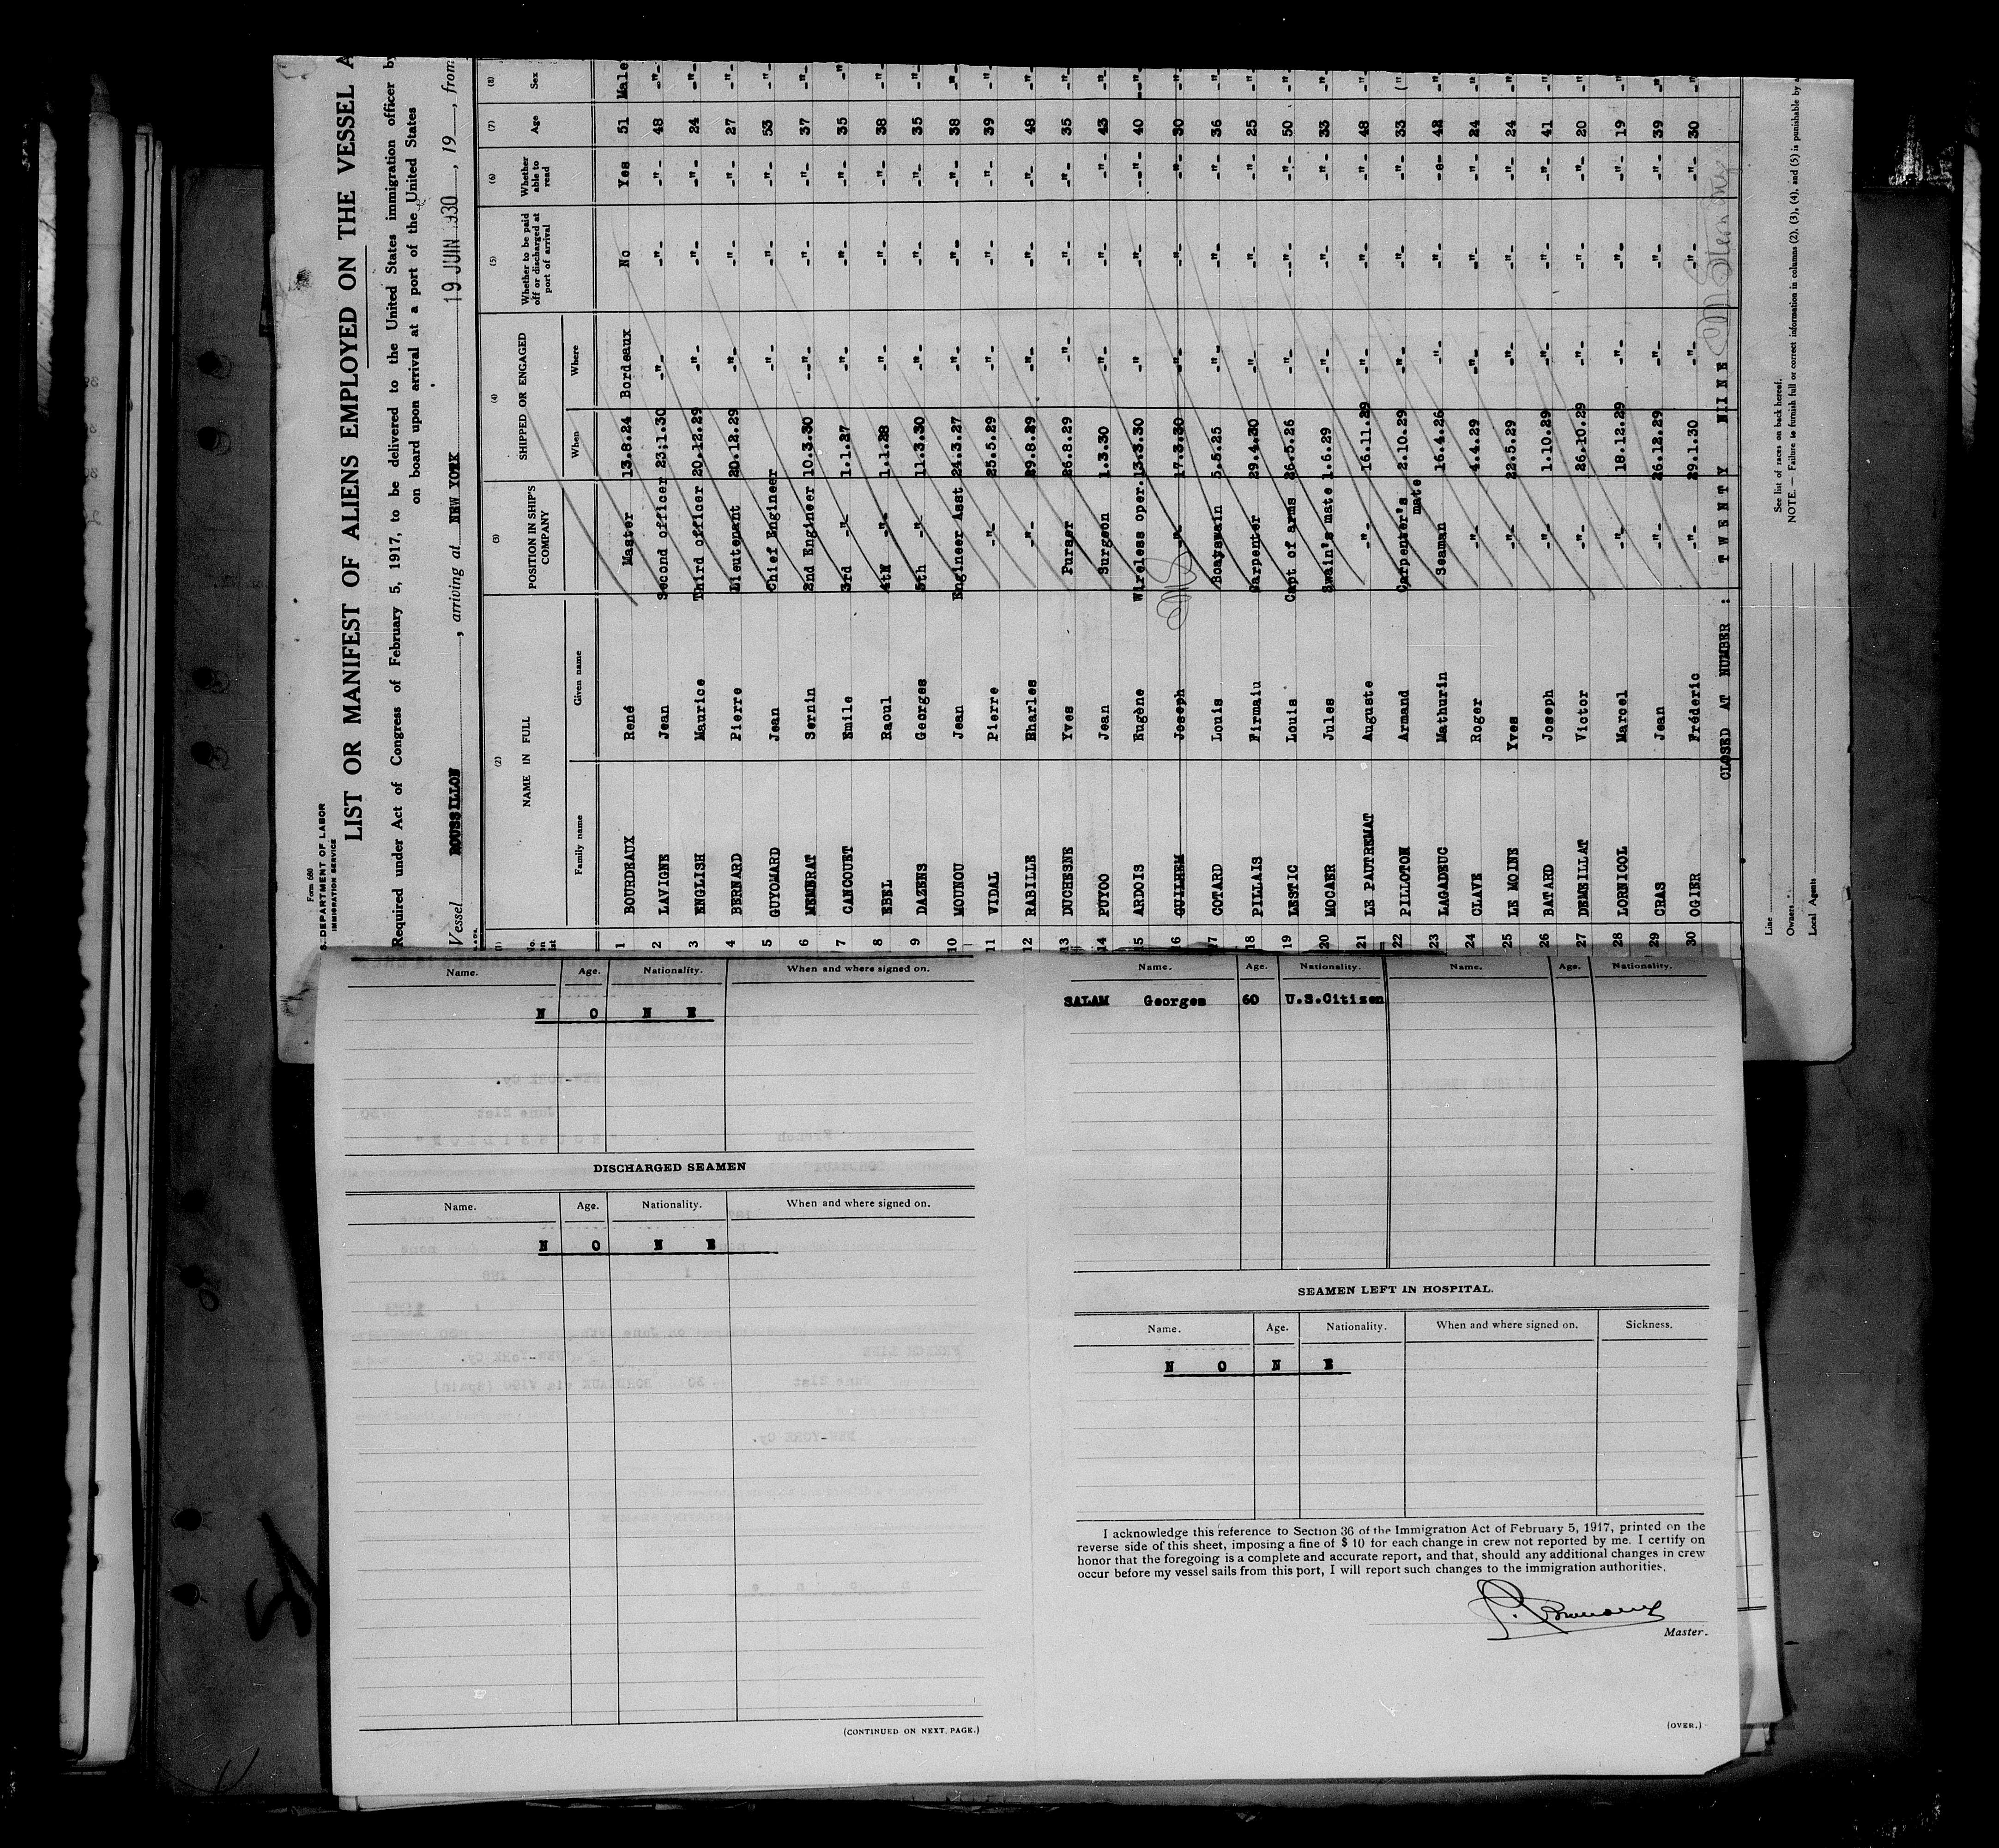 Form 680
S. DEPARTMENT OF LABOR
IMMIGRATION SERVICE
LIST OR MANIFEST OF ALIENS EMPLOYED ON THE VESSEL A
Required under Act of Congress of February 5, 1917, to be delivered to the United States immigration officer by
on board upon arrival at a port of the United States
Vessel ROUSSILLON , arriving at NEW YORK 19 JUIN 1930 , 19 , from
(1) (2) (3) (4) (5) (6) (7) (8)
NAME IN FULL POSITION IN SHIP'S COMPANY SHIPPED OR ENGAGED Whether to be paid off or discharged at port of arrival Whether able to read Age Sex
No. on list Family name Given name When Where
1 BOURDEAUX René Master 13.8.24 Bordeaux No Yes 51 Male
2 LAVIGNE Jean Second officer 23.1.30 -"- -"- -"- 48 -"-
3 ENGLISH Maurice Third officer 20.12.29 -"- -"- -"- 24 -"-
4 BERNARD Pierre Lieutenant 20.12.29 -"- -"- -"- 27 -"-
5 GUYOMARD Jean Chief Engineer -"- -"- -"- 53 -"-
6 MEMERAT Sernin 2nd Engineer 10.3.30 --"- -"- -"- 37 -"-
7 CANCOUET Emile 3rd -"- 1.1.27 -"- -"- -"- 35 -"-
8 EBEL Raoul 4th -"- 1.1.28 -"- -"- -"- 38 -"-
9 DAZENS Georges 5th -"- 11.3.30 -"- -"- -"- 35 -"-
10 MOUNOU Jean Engineer Asst 24.3.27 -"- -"- -"- 38 -"-
11 VIDAL Pierre -"- 25.5.29 -"- -"- -"- 39 -"-
12 RABILLE Bharles -"- 29.8.29 -"- -"- -"- 48 -"-
13 DUCHESNE Yves Purser 26.8.29 -"- -"- -"- 35 -"-
14 PUYOO Jean Surgeon 1.3.30 -"- -"- -"- 43 -"-
15 ARDOIS Eugène Wireless oper. 13.3.30 -"- -"- --"- 40 --"-
16 GUILHEM Joseph -"- 17.3.30 -"- -"- -"- 30 -"-
17 COTARD Louis Boatswain 5.5.25 -"- -"- -"- 36 -"-
18 PILLAIS Firmaiu Carpenter 29.4.30 -"- -"- -"- 25 -"-
19 LESTIC Louis Capt of arms 26.5.26 -"- --"- -"- 50 -"-
20 MOCAER Jules Swain's mate 1.6.29 -"- -"- -"- 33 -"-
21 LE PAUTREMAT Auguste -"- 16.11.29 -"- -"- -"- 48 -"-
22 PILLOTON Armand Carpenter's mate 2.10.29 -"- -"- -"- 33
23 LAGADEUC Mathurin Seaman 16.4.26 -"- -"- 42 -"-
24 CLAVE Roger -"- 4.4.29 -"- -"- -"- 24 -"-
25 LE MOINE Yves -"- 22.5.29 -"- -"- -"- 24 -"-
26 BATARD Joseph -"- 1.10.29 -"- -"- -"- 41 -"-
27 DEMESILLAT Victor -"- 26.10.29 -"- -"- -"- 20 -"-
28 LORNICOL Marcel -"- 18.12.29 -"- -"- -"- 19 -"-
29 CRAS Jean -"- 26.12.29 -"- -"- -"- 39 -"-
30 OGIER Fréderic -"- 29.1.30 -"- -"- -"- 30 -"-
CLOSED AT NUMBER : T W E N T Y N I I N E
Line
Owners
Local Agents
See list of races on back hereof.
NOTE. — Failure to furnish full or correct information in columns (2), (3), (4), and (5) is punishable by a
Name. Age. Nationality. When and where signed on.
N O N E
DISCHARGED SEAMEN
Name. Age. Nationality. When and where signed on.
N O N E
(CONTINUED ON NEXT PAGE.)
Name. Age. Nationality. Name. Age. Nationality.
SALAM Georges 60 U.S.Citizen
SEAMEN LEFT IN HOSPITAL.
Name. Age. Nationality. When and where signed on. Sickness.
N O N E
I acknowledge this reference to Section 36 of the Immigration Act of February 5, 1917, printed on the
reverse side of this sheet, imposing a fine of $ 10 for each change in crew not reported by me. I certify on
honor that the foregoing is a complete and accurate report, and that, should any additional changes in crew
occur before my vessel sails from this port, I will report such changes to the immigration authorities.
Master.
(OVER.)